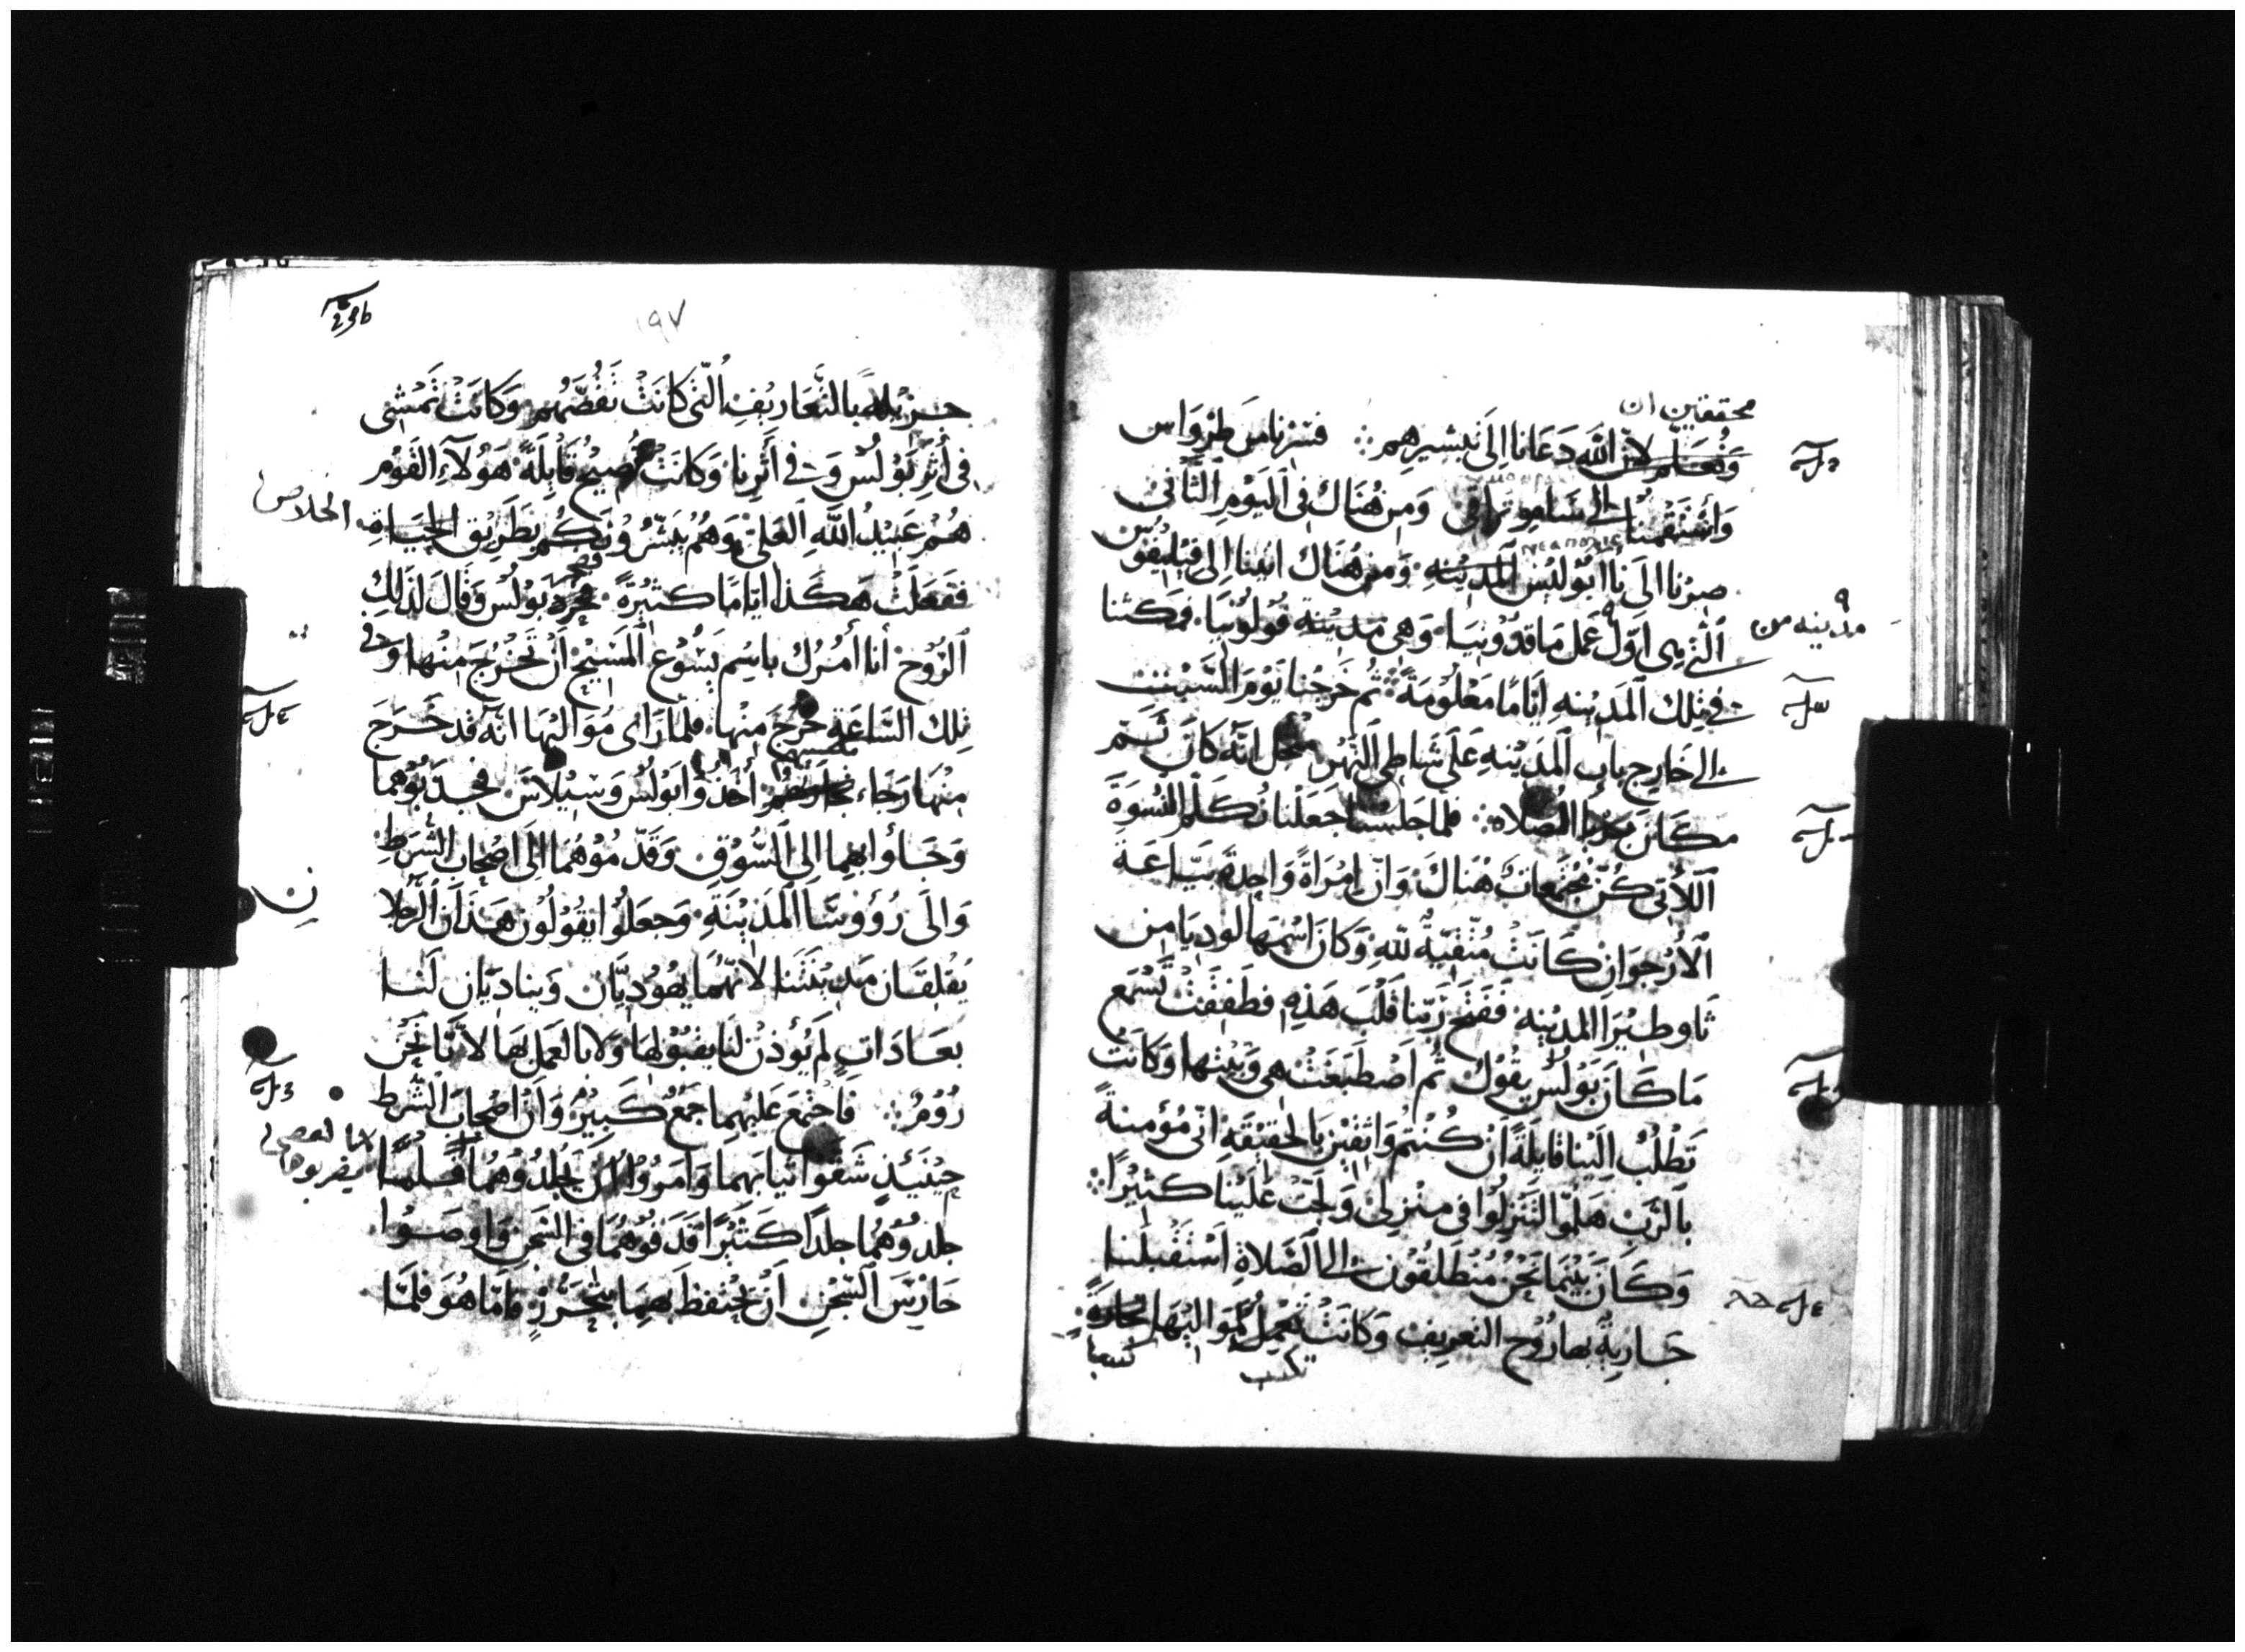 محققين ان
وَنُعلم لانّ الله دَعَانا اِلَى تبشيرهم ⁘ فسِرْنا من طرْوَاس
وَاسْتقمْنا الى ساموتراقى وَمِن هُنَاكَ فى اليَوْمِ الثّانى
صِرْنا الىَ ناابُوليْس المدينه وَمن هُنَاك اتينا الى فيليفوس
الّتى هى اوّل عَمل مَاقدُونيَا وَهى مَديْنة قُولُونيَا فمكثنا
مدينه من
فى تِلكَ المَديْنهِ ايّامًا مَعْلُومَةً ⁘ ثُم خرجْنا يَوْمَ السّبت
الى خَارج باب المديْنهِ عَلى شَاطى النّهْر انّه كانَ ثَم
مكَان الصّلاه ⁘ فلمّا جَلسْنا جَعَلْنا نُكَلّم النّسْوَةَ
اللّاتى كُنّ مُجْتمعَات هُنَاكَ وَانّ امْرَاةً وَاحِدةً بيّاعَة
الارْجوَان كَانَتْ مُتّقيَةً للّهِ وَكانَ اسْمهَا لوديَا من
ثاوطيْرَا المديْنه ففَتَح رَبّنا قَلْبَ هَذِه فطَفِقَتْ تَسْمَع
مَا كَانَ بَوْلُس يَقُول ثُم اصْطَبَغَت هى وَبَيْتها وَكانَت
تَطْلُبُ اِليْنا قايلَةً انْ كُنْتم وَاثقيْن بالحقيْقهِ انّى مُؤمنةً
بالرّبّ هَلمّوا انْزِلُوا فى منْزِلى وَلجّت عَليْنا كثيْرًا ⁘
وَكَانَ بَيْنمَا نَحْنُ مُنْطَلِقُون الى الصّلاةِ اسْتَقْبلتنا
جَاريةٌ بها رُوْح التعريف وَكانَتْ تعْمل لموَاليْهَا تجارةً
تكسب كسبا
١٩٧
جزيْله بالتّعَاريْف الّتى كانَتْ تَقُصّهُم وَكانَتْ تَمْشى
فى أَثرِ بَوْلُس وَفى أَثرِنا وَكانَتْ تَصيْح قَايلَةً هَؤُلآءِ القَوْم
هُمْ عَبيْدُ اللّهِ العَلىّ وَهُمْ يُبَشّرُوْنَكُم بطَريْق الحَيَاة
الخلاص
ففَعَلَتْ هَكَذا ايّامًا كثيْرَةً فحرد بَوْلُس وَقَالَ لذَلِكَ
الرّوْح أنا أمُرُك باسْم يَسُوْع المَسيْح انْ تَخْرُجَ مِنْها وَفى
تِلكَ السّاعَةِ خَرَجَ مِنْها فلمّا رَاى مُوَاليْهَا انّه قد خَرَجَ
مِنْهَا رَجَاء أخَذُوا بَوْلُس وَسيْلاسَ فجذبُوْهما
وَجَاؤا بهِما الى السّوْق وَقدّمُوْهُما الى اصْحاب الشُرَط
وَالَى رُؤُوسَا المَديْنَةِ وَجعَلُوا يقُوْلُون هَذان الرّجلان
يُقْلقَان مَديْنَتَنا لانّهمَا يَهُوْديّان وَيناديَان لَنَا
بعَادَات لَمْ يُؤذنْ لنا بقبُوْلها وَلا بالعَمل بها لانّنا نَحْن
رُوْمٌ ⁘ فاجْتمَعَ عَليْهما جَمْعٌ كَبيْرٌ وَانّ اصْحابَ الشّرَط
حيْنَئذٍ شَقّوا ثيَابَهما وَامَرُوْا انْ يَجْلِدُوْهُما فلمّا
جلدُوْهُمَا جلْدًا كَثيْرًا قَذفُوْهُما فى السّجن وَاوْصَوْا
حَارسَ السّجْن انْ يَحْتفظَ بهِمَا بتحَرّز فامّا هُوَ فلمّا